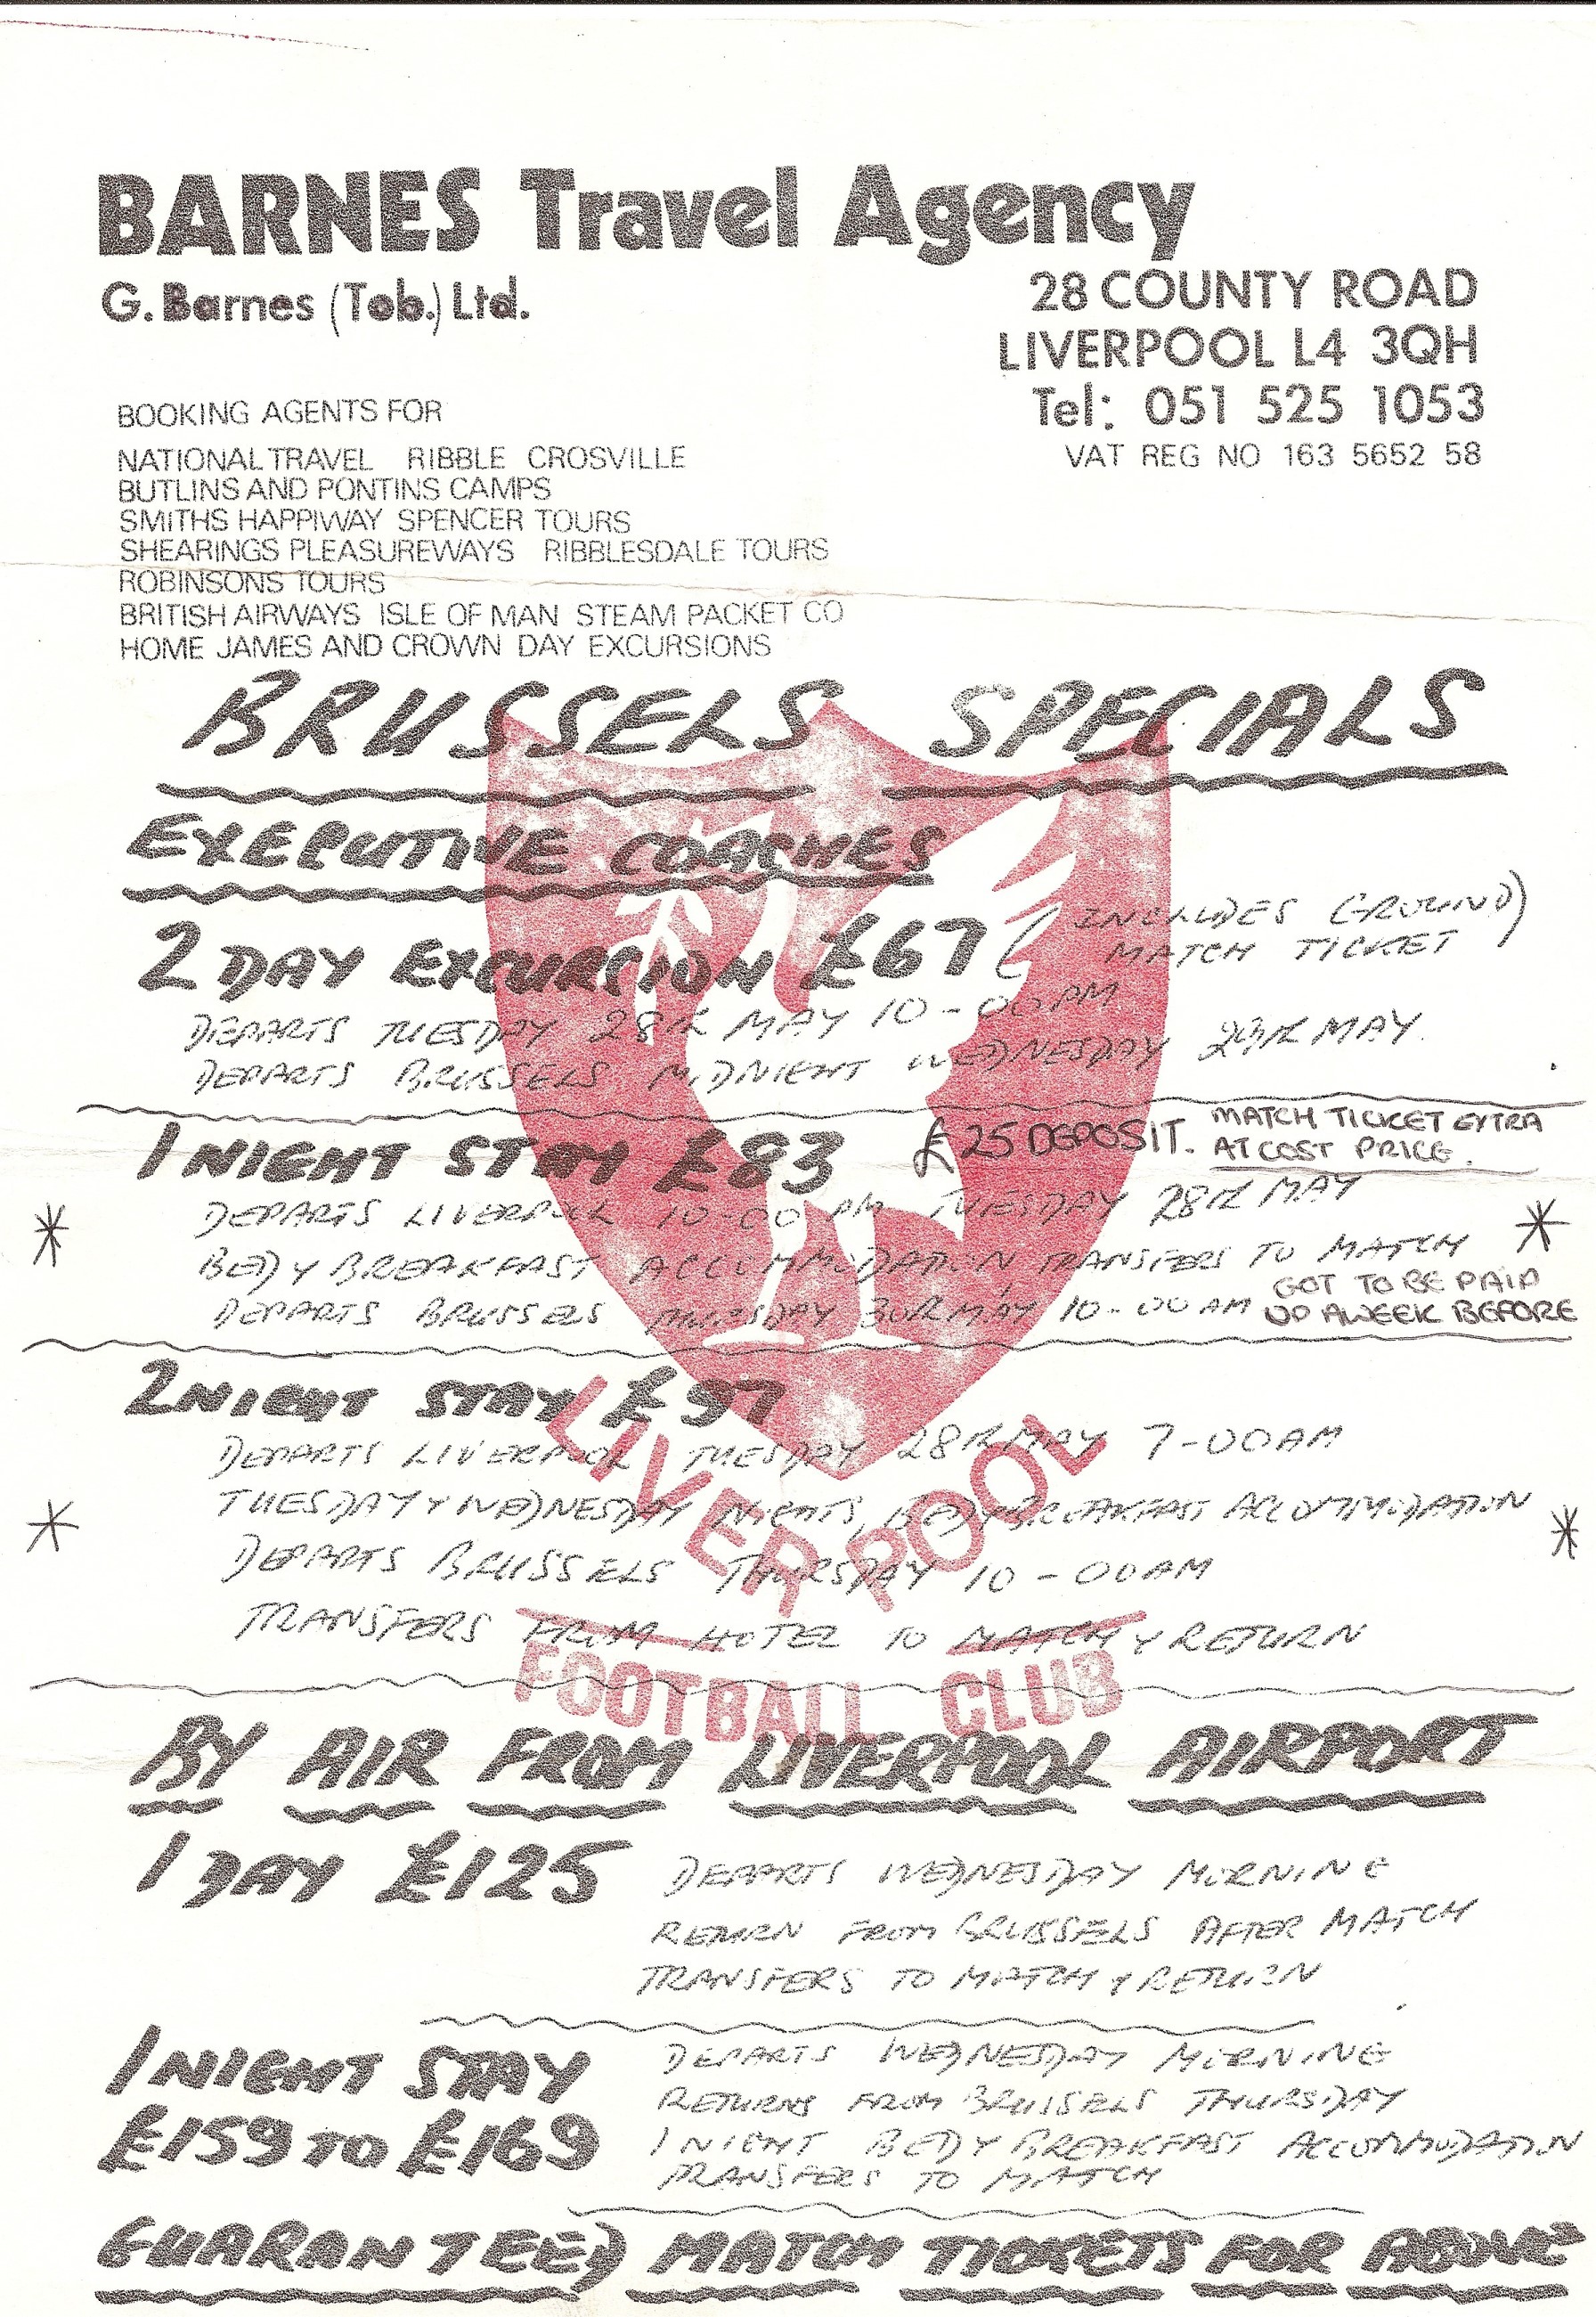 BARNES Travel Agency
G. Barnes (Tob.) Ltd.
28 COUNTY ROAD
LIVERPOOL L4 3QH
Tel: 051 525 1053
VAT REG NO 163 5652 58
BOOKING AGENTS FOR
NATIONAL TRAVEL RIBBLE CROSVILLE
BUTLINS AND PONTINS CAMPS
SMITHS HAPPIWAY SPENCER TOURS
SHEARINGS PLEASUREWAYS RIBBLESDALE TOURS
ROBINSONS TOURS
BRITISH AIRWAYS ISLE OF MAN STEAM PACKET CO
HOME JAMES AND CROWN DAY EXCURSIONS
BRUSSELS SPECIALS
EXECUTIVE COACHES
2 DAY EXCURSION £67 (INCLUDES GROUND)
MATCH TICKET
DEPARTS TUESDAY 28th MAY 10-00PM
DEPARTS BRUSSELS MIDNIGHT WEDNESDAY 29th MAY.
1 NIGHT STAY £83 £25 DEPOSIT. MATCH TICKET EXTRA
AT COST PRICE.
DEPARTS LIVERPOOL 10-00 PM TUESDAY 28th MAY
* BED Y BREAKFAST ACCOMMODATION TRANSFERS TO MATCH *
DEPARTS BRUSSELS THURSDAY 30th MAY 10-00 AM
GOT TO BE PAID
UP A WEEK BEFORE
2 NIGHT STAY £97
DEPARTS LIVERPOOL TUESDAY 28th MAY 7-00AM
* TUESDAY Y WEDNESDAY NIGHTS, BED Y BREAKFAST ACCOMMODATION *
DEPARTS BRUSSELS THURSDAY 10-00AM
TRANSFERS FROM HOTEL TO MATCH Y RETURN
LIVERPOOL
FOOTBALL CLUB
BY AIR FROM LIVERPOOL AIRPORT
1 DAY £125
DEPARTS WEDNESDAY MORNING
RETURN FROM BRUSSELS AFTER MATCH
TRANSFERS TO MATCH Y RETURN
1 NIGHT STAY
£159 TO £169
DEPARTS WEDNESDAY MORNING
RETURNS FROM BRUSSELS THURSDAY
1 NIGHT BED Y BREAKFAST ACCOMMODATION
TRANSFERS TO MATCH
GUARANTEED MATCH TICKETS FOR ABOVE